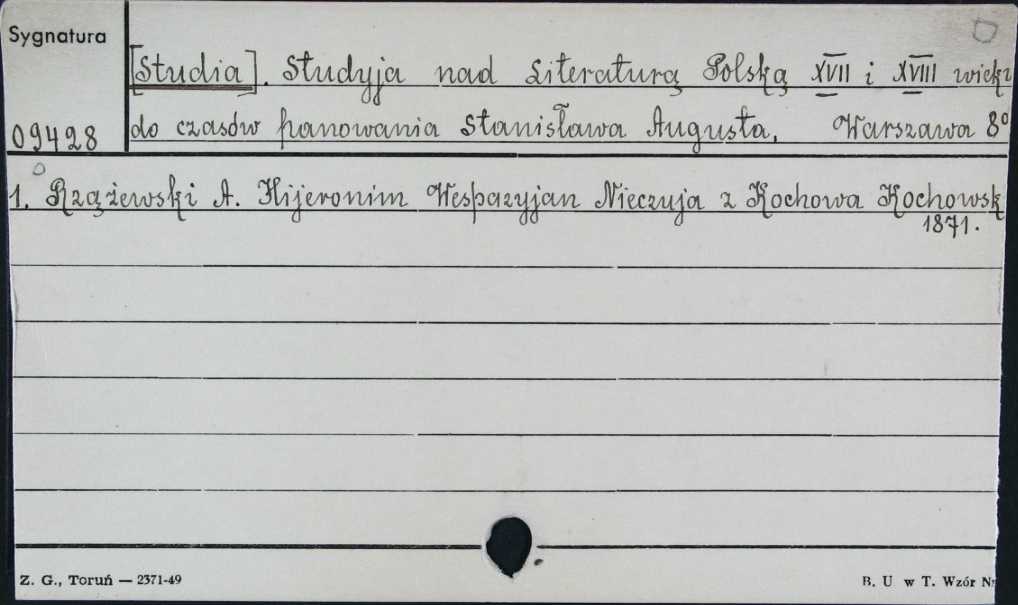 Sygnatura
[Studia]. Studyja nad Literaturą Polską XVII i XVIII wieku
09428 do czasów panowania Stanisława Augusta, Warszawa 8º
1. Rzążewski A. Hijeronim Wespazyjan Nieczuja z Kochowa Kochowsk
1871.
Z. G., Toruń — 2371-49
B. U w T. Wzór Nr